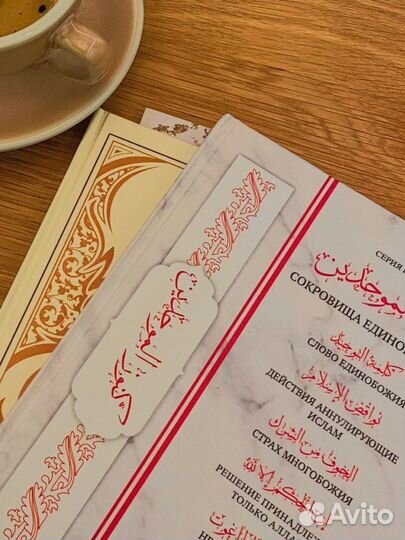 СЕРИЯ
الموحدين
СОКРОВИЩА ЕДИНО
كلمة التوحيد
СЛОВО ЕДИНОБОЖИЯ
نواقض الإسلام
ДЕЙСТВИЯ АННУЛИРУЮЩИЕ
ИСЛАМ
الخوف من الشرك
СТРАХ МНОГОБОЖИЯ
إلا لله
РЕШЕНИЕ ПРИНАДЛЕ
ТОЛЬКО АЛЛА
НЕ
الموحدين
Avito